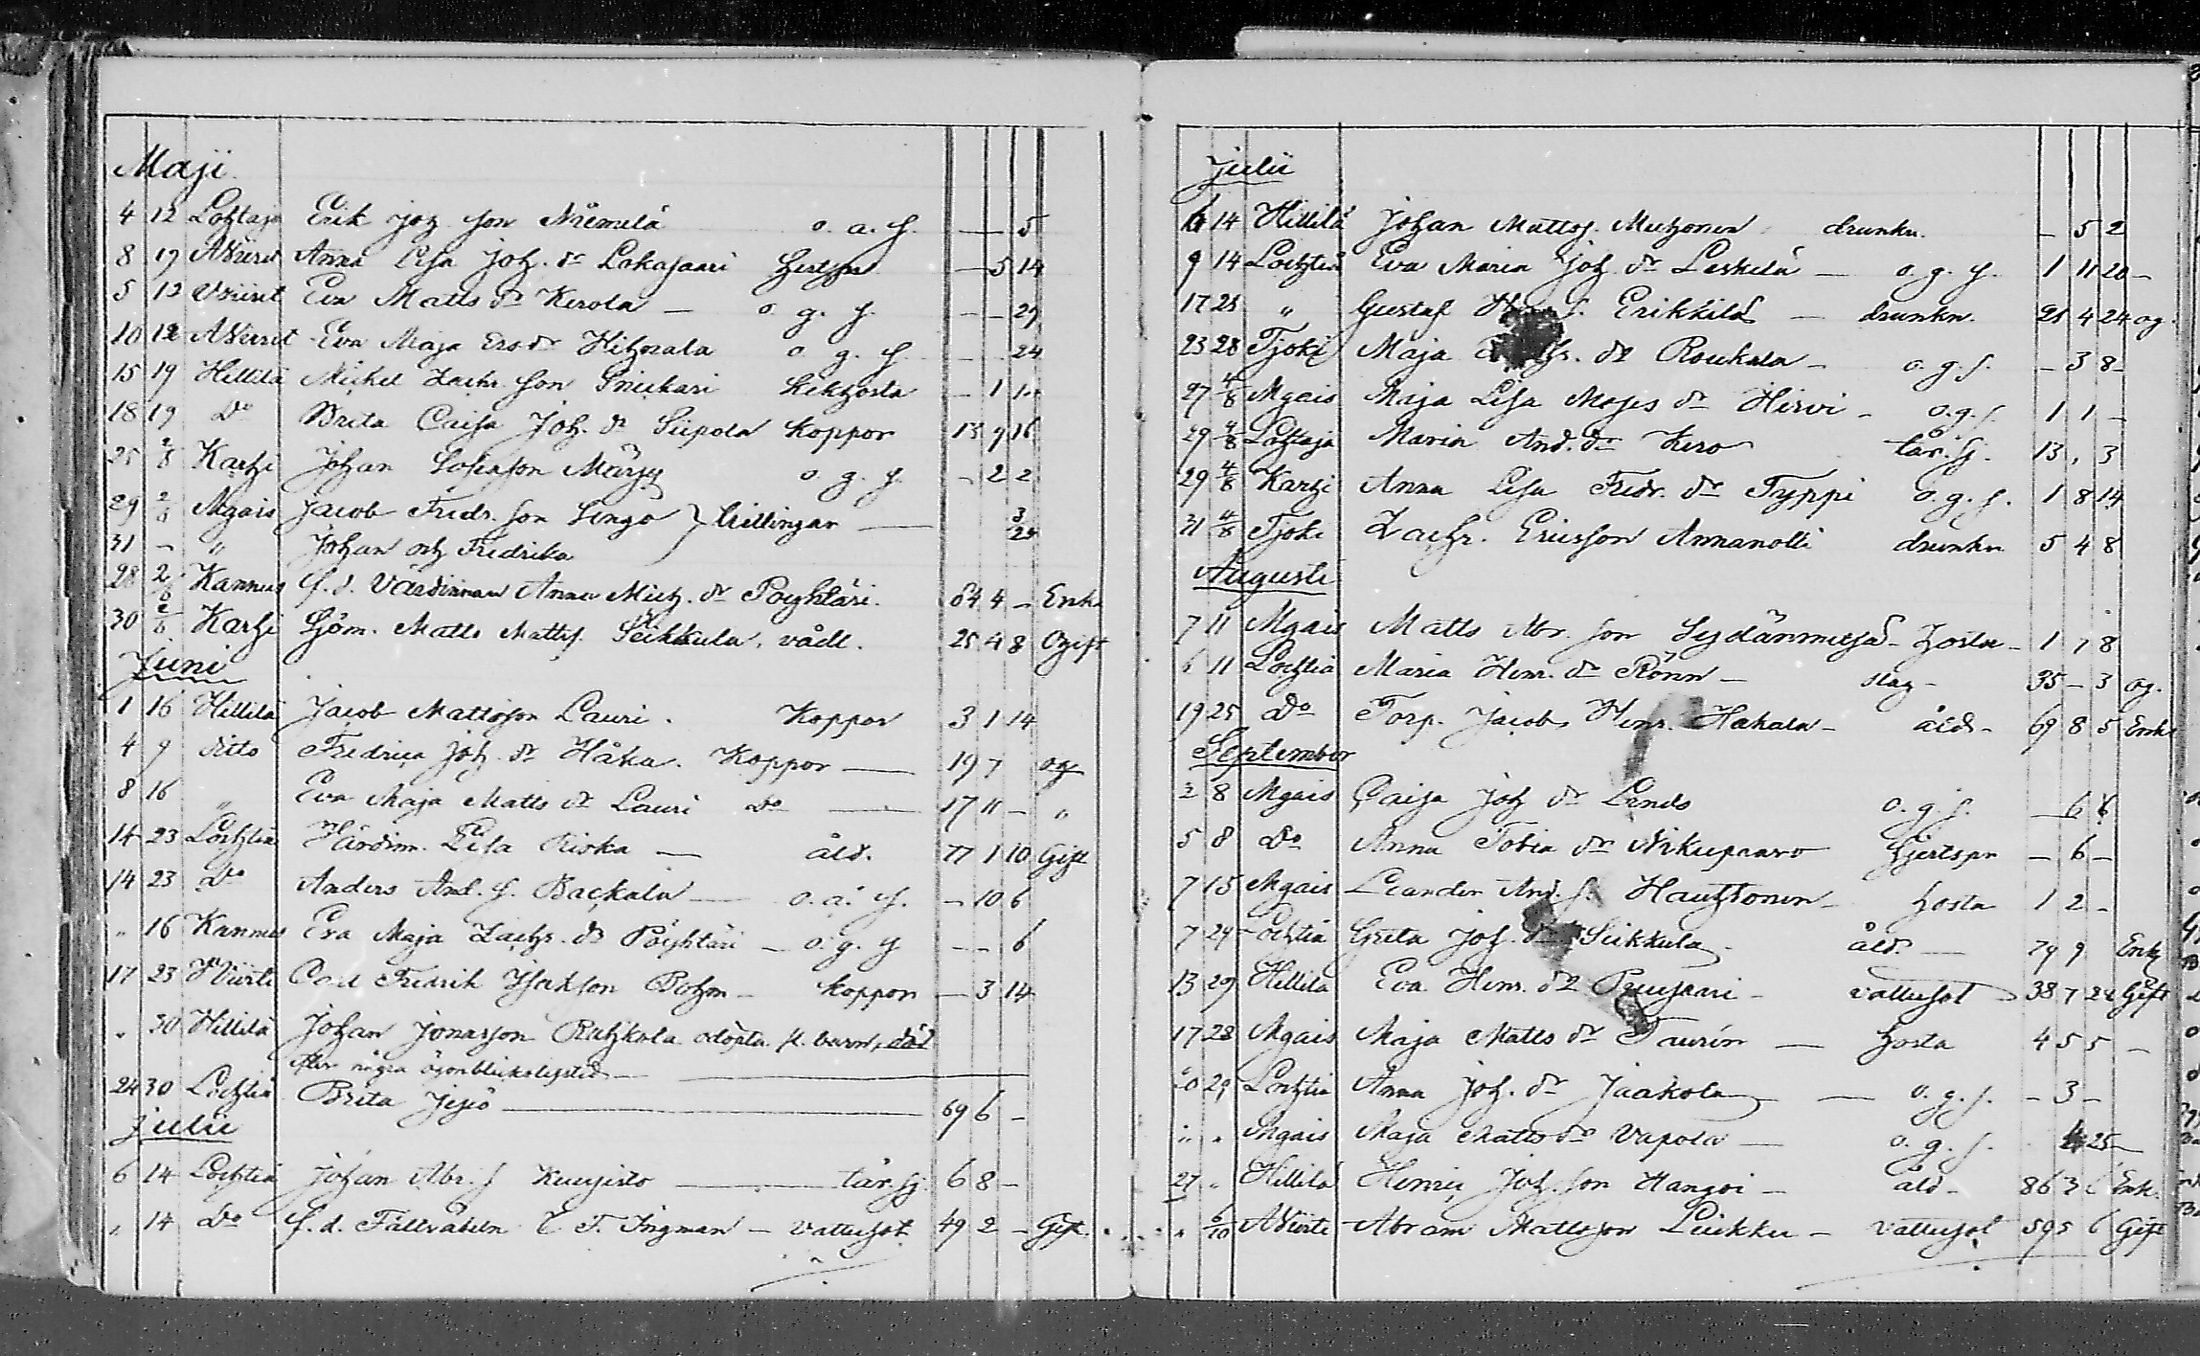 Maji
4 12 Lohtaja Erik Joh. Son Niemelä o. a. s. — 5
8 19 Nviirret Anna Lisa Joh. dr Lakasaari — 5 14
5 12 Vviirret Eva Matts dr Kerola — o. g. s. — — 29
10 12 Nviirret Eva Maja Ers. dr Hihnala o. g. s. — 24
15 19 Hillilä Michel Zachr. Son Snickari kikhosta — 1 1
18 19 Do Brita Caisa Joh. dr Siipola koppor 13 9 16
25 Karhi Johan o. g. s. — 2 2
29 Mgais Jacob Fredr. Son Lingo } Trillingar — 3
31 — „ Johan och Fredrika 24
28 Kannus f. d. Värdinnan Anna Mich. dr Pöyhtäri. 84 4 — Enka
30 Karhi Matts Matts. Seikkula, våd. 25 4 8 Ogift
Juni
1 16 Hillilä Jacob Mattsson Lauri. Koppor 3 1 14
4 9 ditto Fredrica Joh. dr Håka. Koppor — 19 7 og
8 16 „ Eva Maja Matts dr Lauri Do — 17 11 — „
14 23 Lochteå Lisa Riska — åld. 77 1 10 Gift
14 23 Do Anders And. s. Backala — o. a. s. — 10 6
„ 16 Kannus Eva Maja Zachr. dr Pöyhtäri — o. g. s — — 6
17 23 Nviirte Carl Fredrik Isakson Bohm — koppor — 3 14
„ 30 Hillilä Johan Jonasson Ruhkala odöpta barn, död
efter några ögonblicks
24 30 Lochteå Brita — 69 6 —
Julii
6 14 Lochteå Johan Abr. s Kuusisto — tär. sj. 6 8 —
„ 14 Do f. d. Fältväbeln C F. Ingman — vattusot 49 2 — Gift.
Julii
6 14 Hillilä Johan Matts. Muhonen drunkn. — 5 2
9 14 Lochteå Eva Maria Joh. dr Leskelä — o. g. s. 1 11 20 —
17 28 „ Gustaf Erikkilä — drunkn. 21 4 24 og.
23 28 Tjoki Maja dr Roukala — o. g. s. — 3 8 —
27 4/8 Mgais Maja Lisa Moses dr Hirvi — o. g. s. 1 1 —
29 4/8 Lohtaja Maria And. dr Kero tär. sj. 13 , 3
29 4/8 Karhi Anna Lisa Fredr. dr Typpi o. g. s. 1 8 14
31 4/8 Tjoki Zachr. Ericsson Annanolli drunkn 5 4 8
Augusti
7 11 Mgais Matts Abr. Son Sydänmetsä — hosta — 1 1 8
6 11 Lochteå Maria Henr. dr Rönn — slag — 35 — 3 og.
19 25 Do Torp. Jacob Henr. Hakala — åld. — 69 8 5 Enkl
September
2 8 Mgais Caisa Joh dr Linds o. g. s. — 6 6
5 8 Do Anna Tobia dr Nikupaavo — 6 —
7 15 Mgais Leander And. s. Hauhtonen — hosta 1 2 —
7 24 Lochteå Greta Joh. dr Seikkula — åld. — 79 9 Enk
13 29 Hillilä Eva Henr. dr — vattusot — 38 7 24 Gift
17 28 Mgais Maja Matts dr Taurén — hosta 4 5 5 —
20 29 Lochteå Anna Joh. dr Jaakola — o. g. s. — 3 —
„ „ Mgais Maja Matts dr Vapola — o. g. s. 4 25 —
27 „ Hillilä Henric Joh. Son Hangoi — åld — 86 3 6 Enk.
„ 6/10 Nviirte Abram Mattsson Liukku — vattusot 59 5 6 Gift